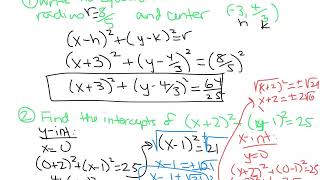 radius r=8/5 and center (-3, 4/3)
h k
(x-h)²+(y-k)²=r
(x+3)²+(y-4/3)²=(8/5)²
(x+3)²+(y-4/3)²=64/25
② Find the intercepts of (x+2)²+(y-1)²=25
y-int:
x=0
(0+2)²+(y-1)²=25
√(x-1)²=√21
x-1=±√21
√(x+2)²=±√24
x+2=±2√6
x-int:
y=0
(x+2)²+(0-1)²=25